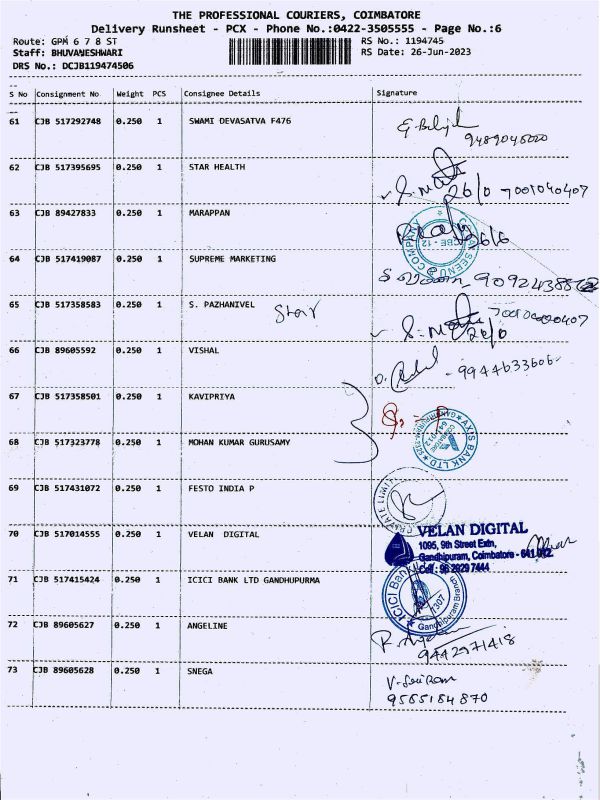 THE PROFESSIONAL COURIERS, COIMBATORE
Delivery Runsheet - PCX - Phone No.:0422-3505555 - Page No.:6
Route: GPM 6 7 8 ST RS No.: 1194745
Staff: BHUVANESHWARI RS Date: 26-Jun-2023
DRS No.: DCJB119474506
S No Consignment No Weight PCS Consignee Details Signature
61 CJB 517292748 0.250 1 SWAMI DEVASATVA F476
9489045020
62 CJB 517395695 0.250 1 STAR HEALTH
26/0 7001040407
63 CJB 89427833 0.250 1 MARAPPAN
26/6
COMPANY CBE - 12
64 CJB 517419087 0.250 1 SUPREME MARKETING
65 CJB 517358583 0.250 1 S. PAZHANIVEL
Star
26/0
66 CJB 89605592 0.250 1 VISHAL
9944633606
67 CJB 517358501 0.250 1 KAVIPRIYA
68 CJB 517323778 0.250 1 MOHAN KUMAR GURUSAMY
AXIS BANK LTD
69 CJB 517431072 0.250 1 FESTO INDIA P
PRIVATE LIMIT
70 CJB 517014555 0.250 1 VELAN DIGITAL
VELAN DIGITAL
1095, 9th Street Extn,
Gandhipuram, Coimbatore - 641 012.
Cell : 96 2929 7444
71 CJB 517415424 0.250 1 ICICI BANK LTD GANDHUPURMA
ICICI Bank Gandhipuram Branch
72 CJB 89605627 0.250 1 ANGELINE
9442971418
73 CJB 89605628 0.250 1 SNEGA
V-Sriram
9565184870